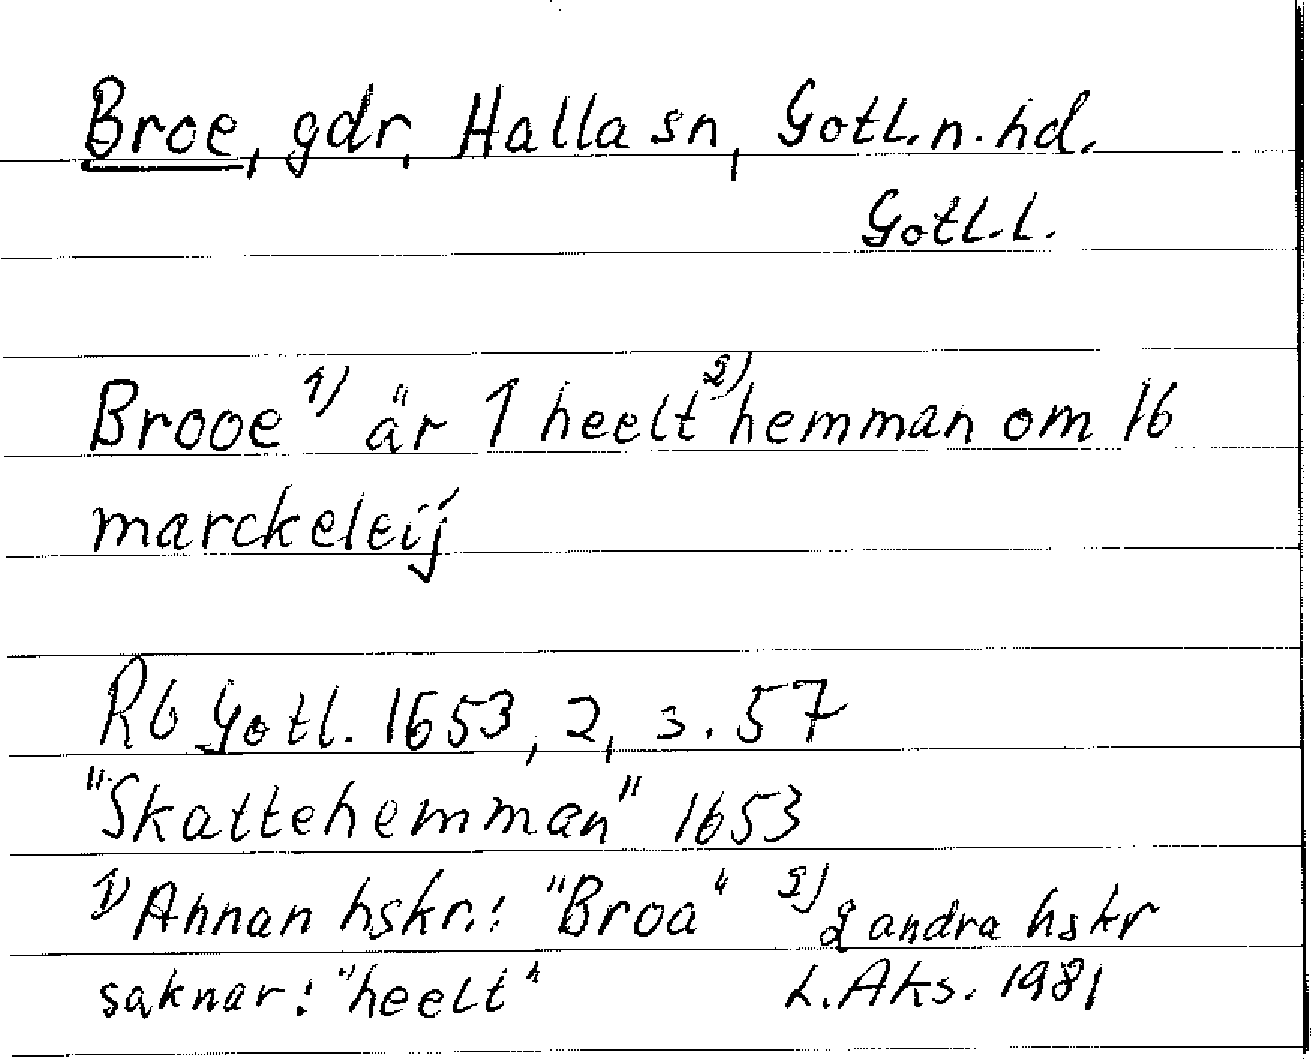 Broe, gdr, Halla sn, Gotl. n. hd.
Gotl. l.
Brooe 1) är 1 heelt 2) hemman om 16
marckeleij
Rb Gotl. 1653, 2, s. 57
"Skattehemman" 1653
1) Annan hskr.: "Broa" 2) 2 andra hskr
saknar: "heelt" L. Aks. 1981